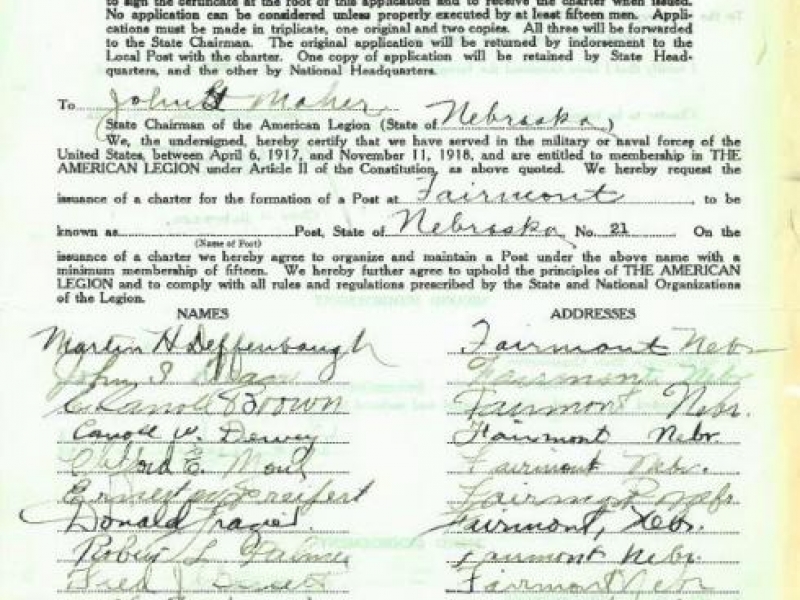 to sign the certificate at the foot of this application and to receive the charter when issued.
No application can be considered unless properly executed by at least fifteen men. Appli-
cations must be made in triplicate, one original and two copies. All three will be forwarded
to the State Chairman. The original application will be returned by indorsement to the
Local Post with the charter. One copy of application will be retained by State Head-
quarters, and the other by National Headquarters.
To John G Maher
State Chairman of the American Legion (State of Nebraska)
We, the undersigned, hereby certify that we have served in the military or naval forces of the
United States, between April 6, 1917, and November 11, 1918, and are entitled to membership in THE
AMERICAN LEGION under Article II of the Constitution, as above quoted. We hereby request the
issuance of a charter for the formation of a Post at Fairmont, to be
known as Post, State of Nebraska No. 21 On the
(Name of Post)
issuance of a charter we hereby agree to organize and maintain a Post under the above name with a
minimum membership of fifteen. We hereby further agree to uphold the principles of THE AMERICAN
LEGION and to comply with all rules and regulations prescribed by the State and National Organizations
of the Legion.
NAMES ADDRESSES
Martin H Deffenbaugh Fairmont Nebr
John Fairmont Nebr
Carroll Brown Fairmont Nebr.
Carroll W. Dewey Fairmont Nebr.
Clifford E. Fairmont Nebr.
Ernest W Greifert Fairmont Nebr
Donald Frazier. Fairmont, Nebr.
L Palmer Fairmont Nebr.
Fred J Fairmont Nebr